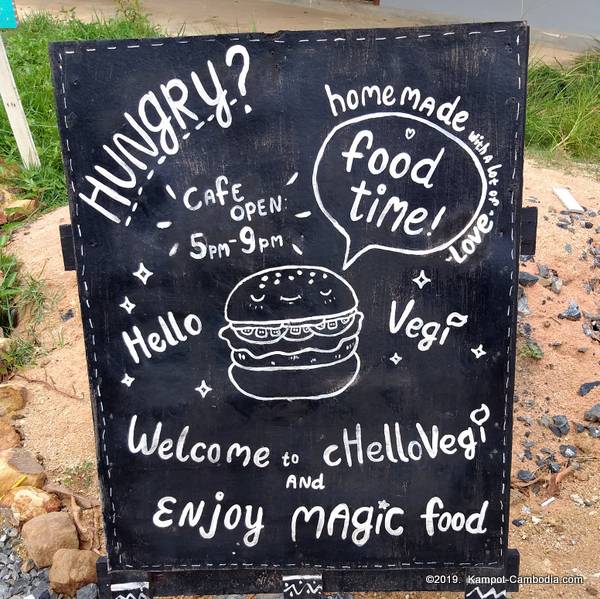 HUNGRY?
homemade with a lot of Love.
food
time!
CAFE
OPEN:
5pm-9pm
Hello
Vegi
Welcome to cHelloVegi
AND
ENJOY MAGIC food
©2019. Kampot-Cambodia.com